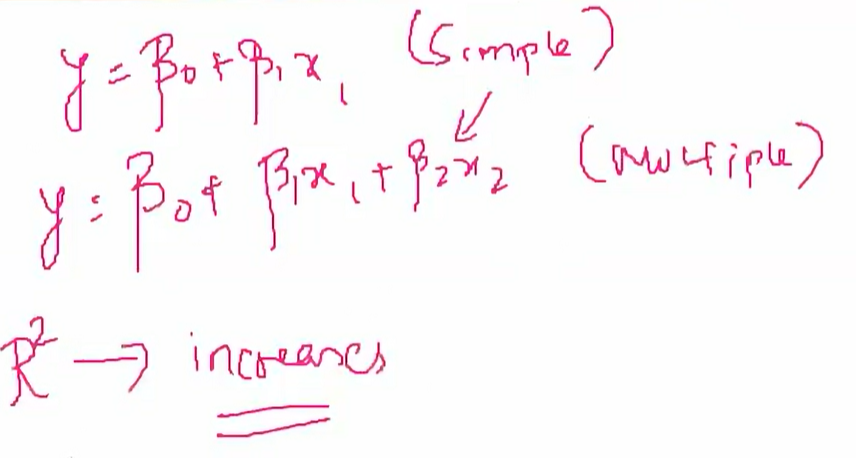 y = β₀ + β₁x₁ (Simple)
y = β₀ + β₁x₁ + β₂x₂ (Multiple)
R² → increases